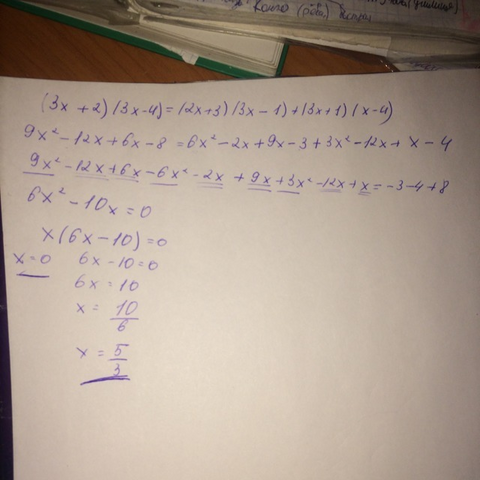 Кого
(3x + 2)(3x-4) = (2x+3)(3x - 1) + (3x+1)(x-4)
9x² - 12x + 6x - 8 = 6x² - 2x + 9x - 3 + 3x² - 12x + x - 4
9x² - 12x + 6x - 6x² - 2x + 9x + 3x² - 12x + x = -3 - 4 + 8
6x² - 10x = 0
x(6x - 10) = 0
x = 0 6x - 10 = 0
6x = 10
x = 10/6
x = 5/3